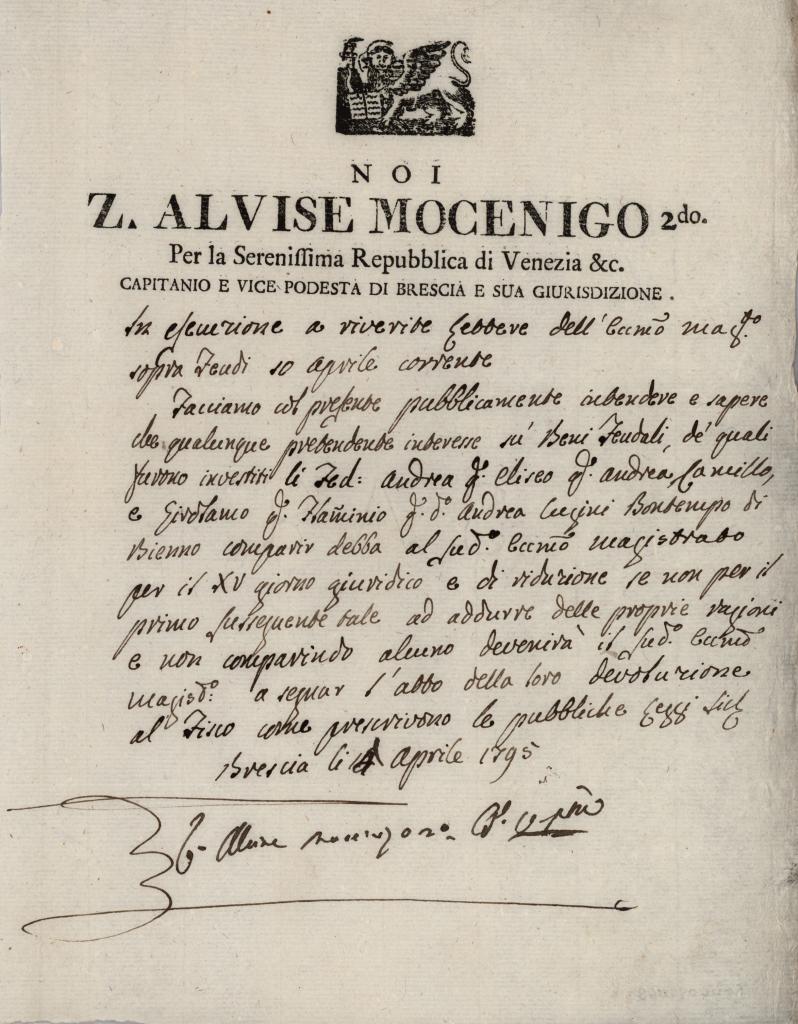 NOI
Z. ALVISE MOCENIGO 2do.
Per la Sereniſſima Repubblica di Venezia &c.
CAPITANIO E VICE PODESTA DI BRESCIA E SUA GIURISDIZIONE.
In esecuzione a riverite Lettere dell' Eccmo mag.to
sopra Feudi 10 Aprile corrente
Facciamo col preſente pubblicamente intendere e sapere
che qualunque pretendente interesse su' Beni Feudali, de' quali
furono investiti li Fed: Andrea q. Eliseo q. Andrea, Camillo,
e Girolamo q. Flaminio q. d.o Andrea Cugini Bontempo di
Bienno comparir debba al sud.o Eccmo magistrato
per il XV giorno giuridico e di riduzione se non per il
primo susseguente tale ad addurre delle proprie ragioni
e non comparindo alcuno devenirà il sud.o Eccmo
magisto: a segnar l'atto della loro devoluzione
al Fisco come prescrivono le pubbliche Leggi Sic
Brescia li Aprile 1795
Z. Alvise Mocenigo 2o